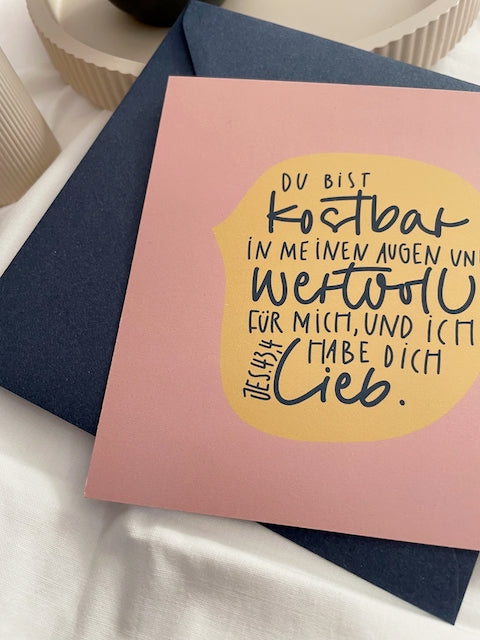 DU BIST
kostbar
IN MEINEN AUGEN UND
wertvoll
FÜR MICH, UND ICH
HABE DICH
Lieb.
JES.43,4